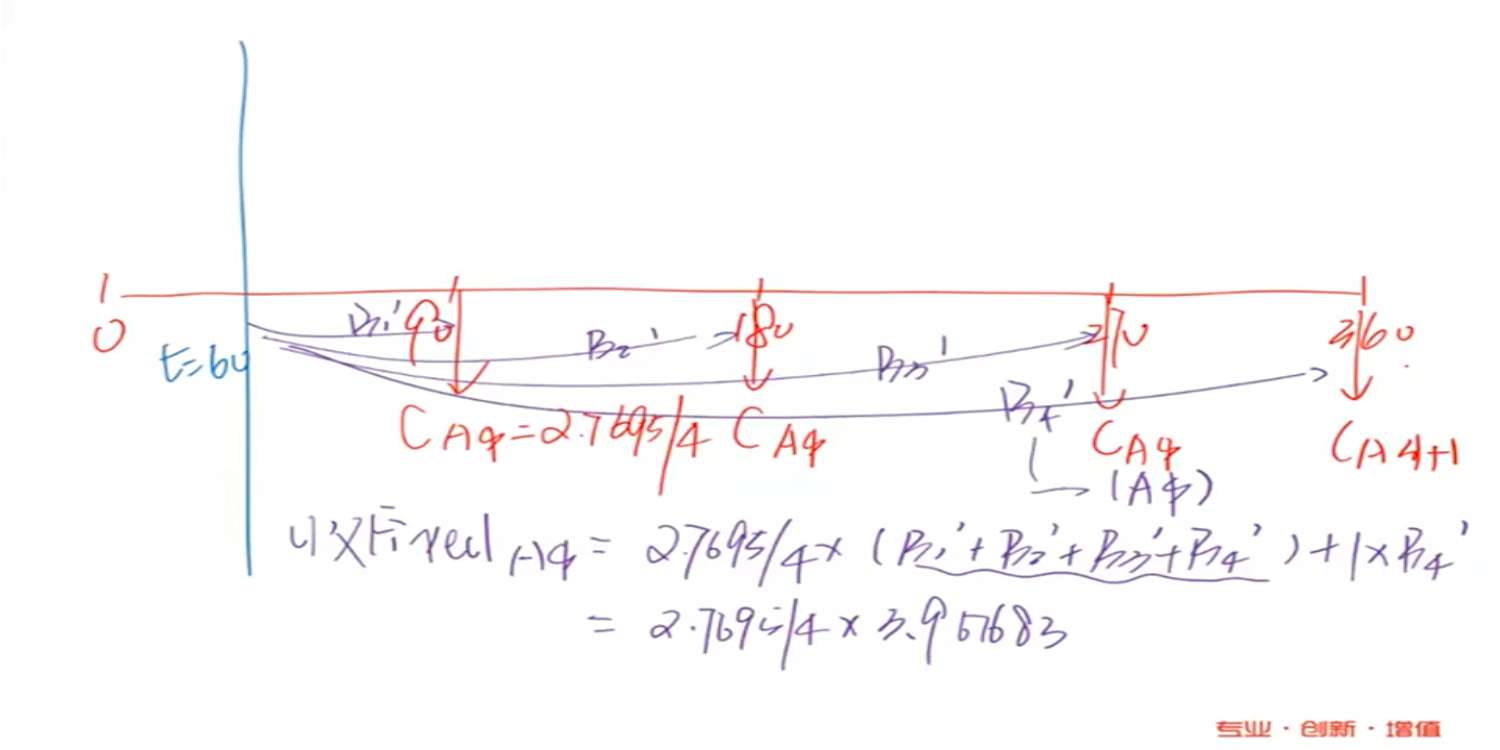 0
t=60
B₁'
90
B₂'
180
B₃'
270
360
B₄'
C_Aф=2.7695/4
C_Aф
C_Aф
C_Aф+1
→(Aф)
Fixed_Aф = 2.7695/4 × (B₁'+B₂'+B₃'+B₄')+1×B₄'
= 2.7695/4 × 3.951683
专业·创新·增值